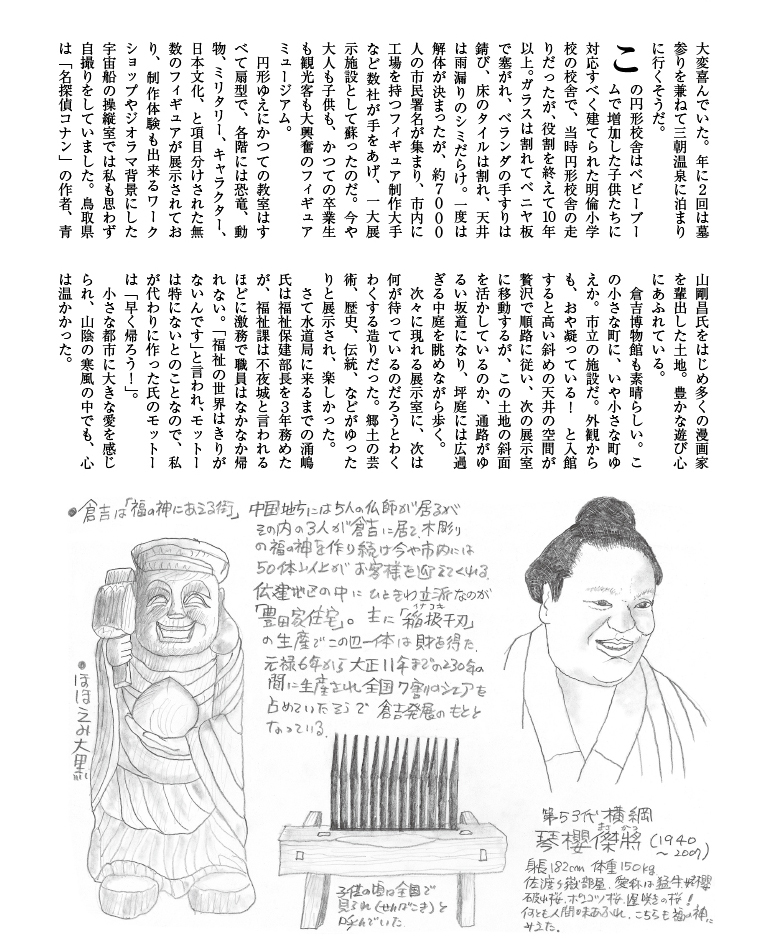 大変喜んでいた。年に2回は墓
参りを兼ねて三朝温泉に泊まり
に行くそうだ。
この円形校舎はベビーブー
ムで増加した子供たちに
対応すべく建てられた明倫小学
校の校舎で、当時円形校舎の走
りだったが、役割を終えて10年
以上。ガラスは割れてベニヤ板
で塞がれ、ベランダの手すりは
錆び、床のタイルは割れ、天井
は雨漏りのシミだらけ。一度は
解体が決まったが、約7000
人の市民署名が集まり、市内に
工場を持つフィギュア制作大手
など数社が手をあげ、一大展
示施設として蘇ったのだ。今や
大人も子供も、かつての卒業生
も観光客も大興奮のフィギュア
ミュージアム。
円形ゆえにかつての教室はす
べて扇型で、各階には恐竜、動
物、ミリタリー、キャラクター、
日本文化、と項目分けされた無
数のフィギュアが展示されてお
り、制作体験も出来るワーク
ショップやジオラマ背景にした
宇宙船の操縦室では私も思わず
自撮りをしていました。鳥取県
は「名探偵コナン」の作者、青
山剛昌氏をはじめ多くの漫画家
を輩出した土地。豊かな遊び心
にあふれている。
倉吉博物館も素晴らしい。こ
の小さな町に、いや小さな町ゆ
えか。市立の施設だ。外観から
も、おや凝っている! と入館
すると高い斜めの天井の空間が
贅沢で順路に従い、次の展示室
に移動するが、この土地の斜面
を活かしているのか、通路がゆ
るい坂道になり、坪庭には広過
ぎる中庭を眺めながら歩く。
次々に現れる展示室に、次は
何が待っているのだろうとわく
わくする造りだった。郷土の芸
術、歴史、伝統、などがゆった
りと展示され、楽しかった。
さて水道局に来るまでの涌嶋
氏は福祉保健部長を3年務めた
が、福祉課は不夜城と言われる
ほどに激務で職員はなかなか帰
れない。「福祉の世界はきりが
ないんです」と言われ、モットー
は特にないとのことなので、私
が代わりに作った氏のモットー
は「早く帰ろう!」。
小さな都市に大きな愛を感じ
られ、山陰の寒風の中でも、心
は温かかった。
●倉吉は「福の神にあえる街」
中国地方には5人の仏師が居るが
その内の3人が倉吉に居て、木彫り
の福の神を作り続け今や市内には
50体以上がお客様を迎えてくれる。
伝建地区の中にひときわ立派なのが
「豊田家住宅」。主に「稲扱千刃」
の生産でこの辺一体は財を得た。
元禄6年から大正11年までの230年の
間に生産され全国7割のシェアを
占めていたそうで 倉吉発展のもとと
なっている。
●ほほえみ大黒
子供の頃は全国で
見られ(せんばこき)と
呼んでいた
第53代横綱
琴櫻傑將(1940
〜2007)
身長182cm 体重150kg
佐渡ヶ嶽部屋、愛称は猛牛、
破れ桜、ポンコツ桜、遅咲きの桜!
何とも人間味あふれ、こちらも福の神に
みえた。